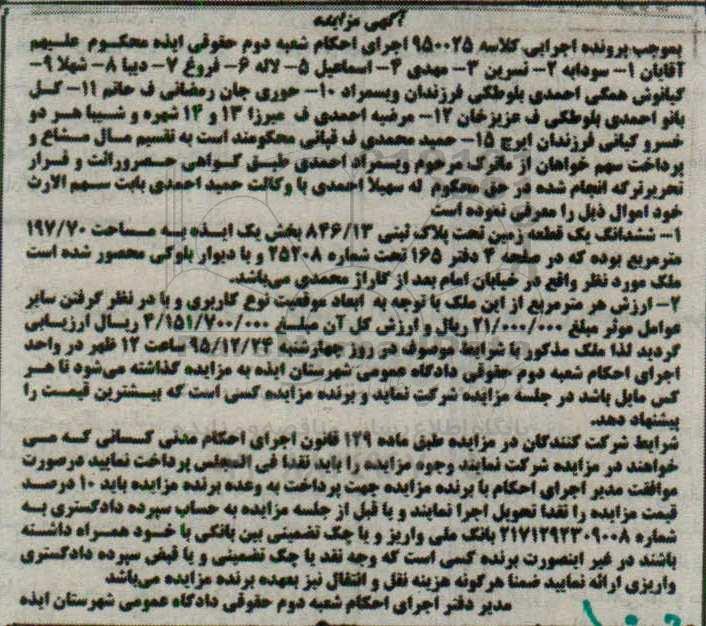 آگهی مزایده
بموجب پرونده اجرایی کلاسه ۹۵۰۰۲۵ اجرای احکام شعبه دوم حقوقی ایذه محکوم علیهم
آقایان ۱- سودابه ۲- نسرین ۳- مهدی ۴- اسماعیل ۵- لاله ۶- فروغ ۷- دیبا ۸- شهلا ۹-
کیانوش همگی احمدی بلوطکی فرزندان ویسمراد ۱۰- حوری جان رمضانی ف حاتم ۱۱- گل
بانو احمدی بلوطکی ف عزیزخان ۱۲- مرضیه احمدی ف میرزا ۱۳ و ۱۴ شهره و شیبا هر دو
خسرو کیانی فرزندان ایرج ۱۵- حمید محمدی ف قبانی محکومند است به تقسیم مال مشاع و
پرداخت سهم خواهان از ماترک مرحوم ویسمراد احمدی طبق گواهی حصروراثت و قرار
تحریرترکه انجام شده در حق محکوم له سهیلا احمدی با وکالت حمید احمدی بابت سهم الارث
خود اموال ذیل را معرفی نموده است
۱- ششدانگ یک قطعه زمین تحت پلاک ثبتی ۸۴۶/۱۳ بخش یک ایذه به مساحت ۱۹۷/۷۰
مترمربع بوده که در صفحه ۴ دفتر ۱۶۵ تحت شماره ۲۵۲۰۸ و با دیوار بلوکی محصور شده است
ملک مورد نظر واقع در خیابان امام بعد از گاراژ محمدی می‌باشد.
۲- ارزش هر مترمربع از این ملک با توجه به ابعاد موقعیت نوع کاربری و با در نظر گرفتن سایر
عوامل موثر مبلغ ۲۱/۰۰۰/۰۰۰ ریال و ارزش کل آن مبلغ ۴/۱۵۱/۷۰۰/۰۰۰ ریسال ارزیابی
گردید لذا ملک مذکور با شرایط موصوف در روز چهارشنبه ۹۵/۱۲/۲۴ ساعت ۱۲ ظهر در واحد
اجرای احکام شعبه دوم حقوقی دادگاه عمومی شهرستان ایذه به مزایده گذاشته می‌شود تا هر
کس مایل باشد در جلسه مزایده شرکت نماید و برنده مزایده کسی است که بیشترین قیمت را
پیشنهاد دهد.
شرایط شرکت کنندگان در مزایده طبق ماده ۱۲۹ قانون اجرای احکام مدنی کسانی که می
خواهند در مزایده شرکت نمایند وجوه مزایده را باید نقدا فی المجلس پرداخت نمایید درصورت
موافقت مدیر اجرای احکام با برنده مزایده جهت پرداخت به وعده برنده مزایده باید ۱۰ درصد
قیمت مزایده را نقدا تحویل اجرا نمایند و یا قبل از جلسه مزایده به حساب سپرده دادگستری به
شماره ۲۱۷۱۲۹۲۳۰۹۰۰۸ بانک ملی واریز و یا چک تضمینی بین بانکی با خود همراه داشته
باشند در غیر اینصورت برنده کسی است که وجه نقد یا چک تضمینی و یا قبض سپرده دادگستری
واریزی ارائه نمایید ضمنا هرگونه هزینه نقل و انتقال نیز بعهده برنده مزایده می‌باشد
مدیر دفتر اجرای احکام شعبه دوم حقوقی دادگاه عمومی شهرستان ایذه